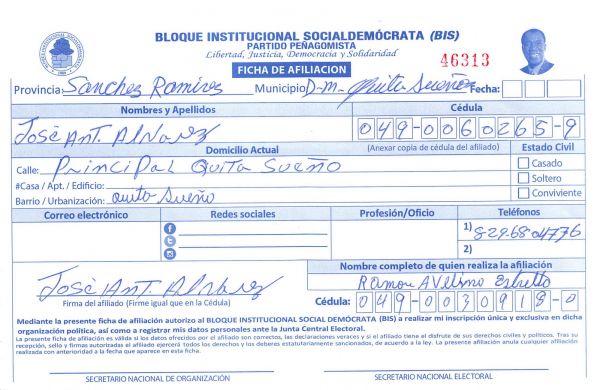 BLOQUE INSTITUCIONAL SOCIALDEMÓCRATA (BIS)
PARTIDO PEÑAGOMISTA
Libertad, Justicia, Democracia y Solidaridad
46313
FICHA DE AFILIACION
Provincia: Sanchez Ramirez Municipio D-M- Quita Sueño Fecha:
Nombres y Apellidos Cédula
José Ant. Alvarez 049-0060265-9
Domicilio Actual (Anexar copia de cédula del afiliado) Estado Civil
Calle: Principal Quita Sueño Casado
#Casa / Apt. / Edificio: Soltero
Barrio / Urbanización: Quita Sueño Conviviente
Correo electrónico Redes sociales Profesión/Oficio Teléfonos
1) 829-680-4776
2)
Nombre completo de quien realiza la afiliación
José Ant. Alvarez Ramon Avelino
Firma del afiliado (Firme igual que en la Cédula) Cédula: 049-0030918-0
Mediante la presente ficha de afiliación autorizo al BLOQUE INSTITUCIONAL SOCIAL DEMÓCRATA (BIS) a realizar mi inscripción única y exclusiva en dicha
organización política, así como a registrar mis datos personales ante la Junta Central Electoral.
La presente ficha de afiliación es válida si los datos ofrecidos por el afiliado son correctos, las declaraciones veraces y si el afiliado tiene el disfrute de sus derechos civiles y políticos. Tras su
recepción, sello y firmas autorizadas el afiliado ejercerá todos los derechos y los deberes estatutariamente sancionados, de acuerdo a la ley. La presente afiliación anula cualquier afiliación
realizada con anterioridad a la fecha que aparece en esta ficha.
SECRETARIO NACIONAL DE ORGANIZACIÓN SECRETARIO NACIONAL ELECTORAL